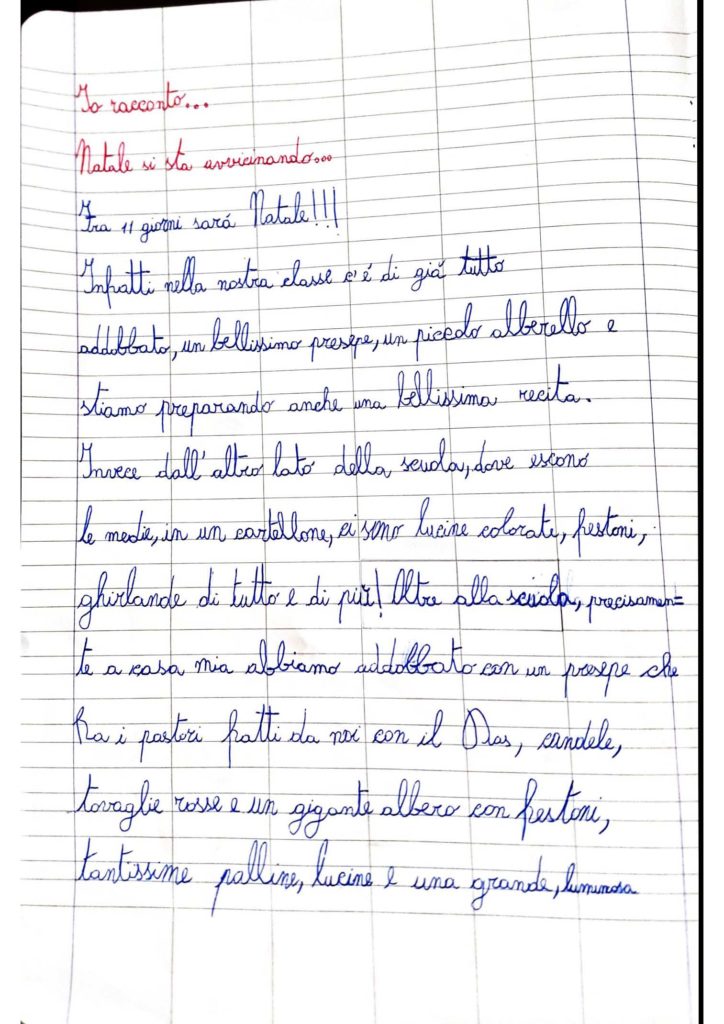 Io racconto...
Natale si sta avvicinando...
Fra 11 giorni sará Natale!!!
Infatti nella nostra classe c'é di giá tutto
addobbato, un bellissimo presepe, un piccolo alberello e
stiamo preparando anche una bellissima recita.
Invece dall'altro lato della scuola, dove escono
le medie, in un cartellone, ci sono lucine colorate, festoni,
ghirlande di tutto e di più! Oltre alla scuola, precisamen=
te a casa mia abbiamo addobbato con un presepe che
ha i pastori fatti da noi con il Das, candele,
tovaglie rosse e un gigante albero con festoni,
tantissime palline, lucine e una grande, luminosa